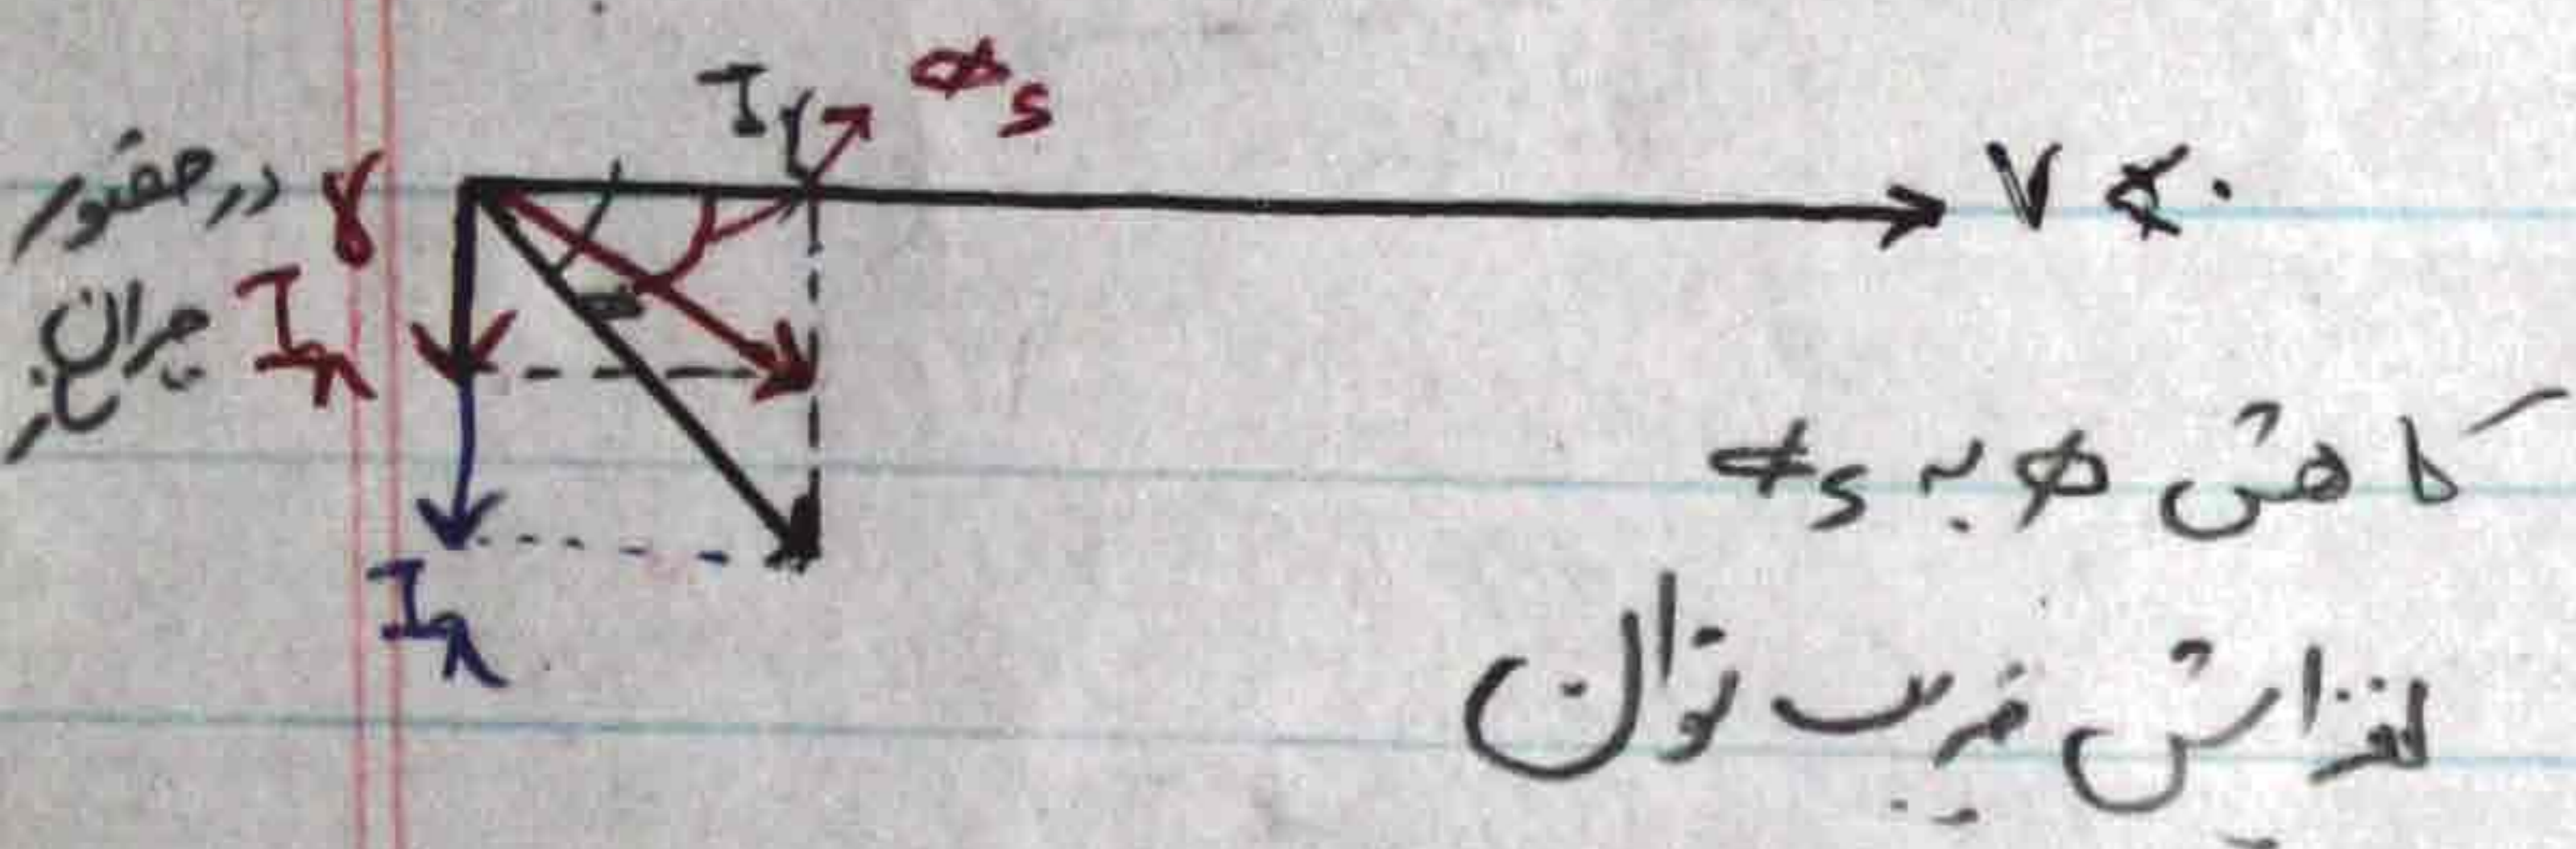 I_r
ϕ_s
V ∡ ۰
در حضور
جبران
ساز
γ
I_x
I_x
کاهش ϕ به ϕ_s
افزایش ضریب توان